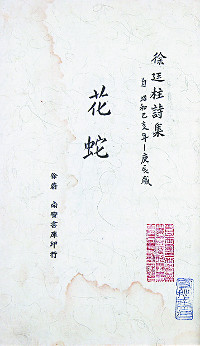 徐廷柱詩集
自 昭和乙亥年―庚辰歲
花蛇
南蠻書庫印行